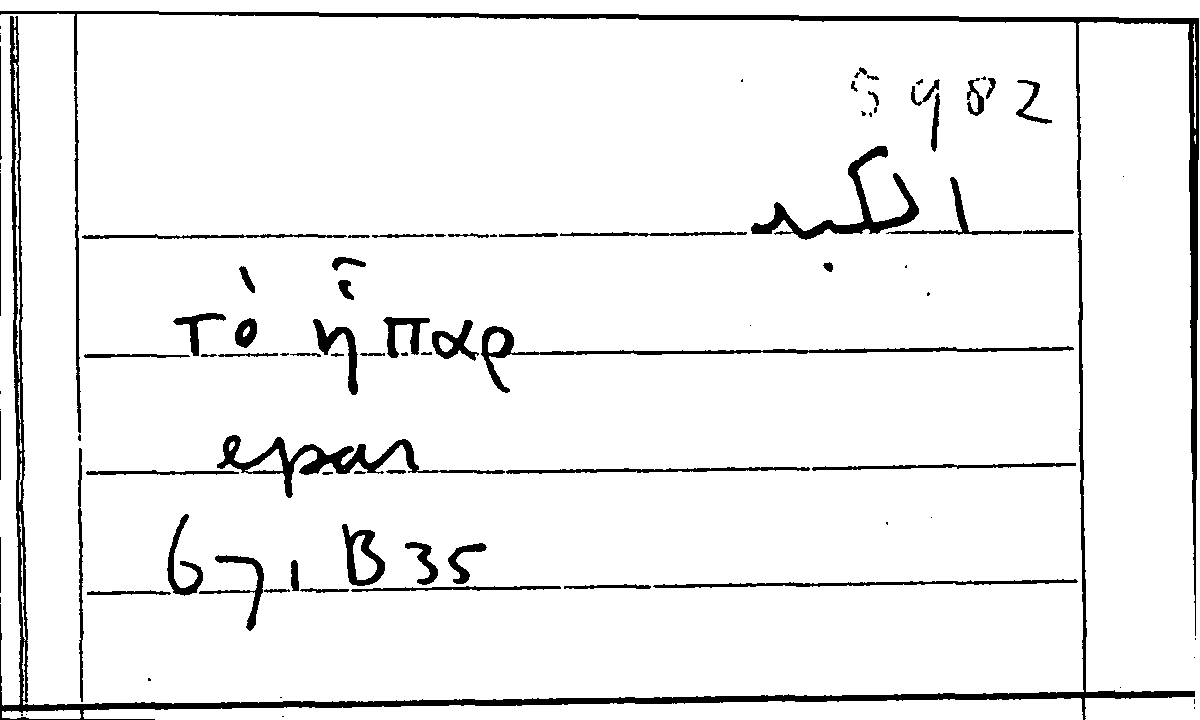 5982
الكبد
τὸ ἧπαρ
epar
671 B 35